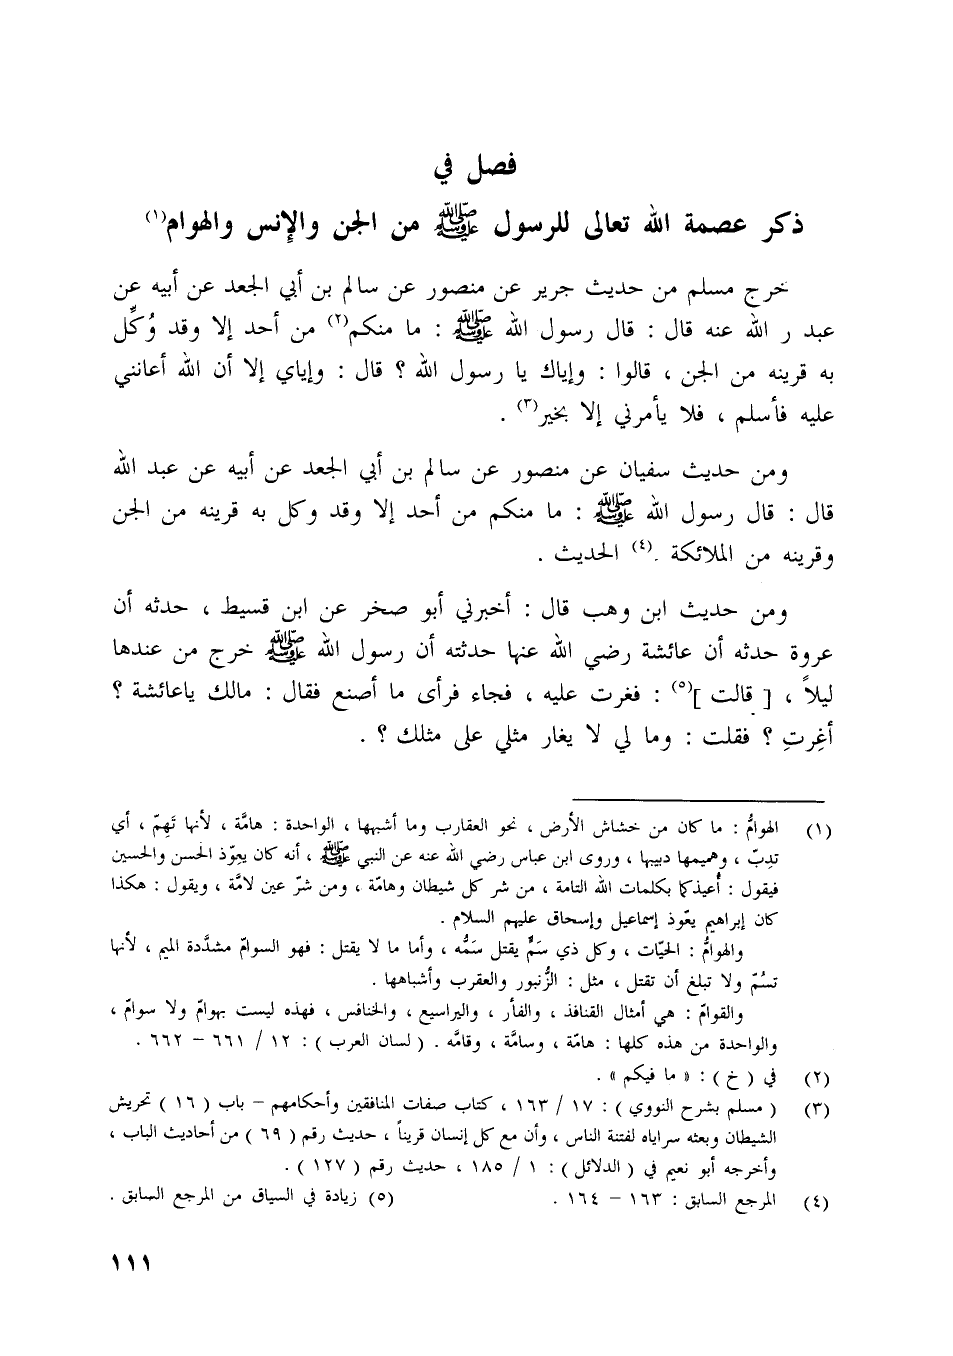 فصل في
ذكر عصمة الله تعالى للرسول ﷺ من الجن والإنس والهوام(١)
خرج مسلم من حديث جرير عن منصور عن سالم بن أبي الجعد عن أبيه عن
عبد ر الله عنه قال : قال رسول الله ﷺ : ما منكم(٢) من أحد إلا وقد وُكِّل
به قرينه من الجن ، قالوا : وإياك يا رسول الله ؟ قال : وإياي إلا أن الله أعانني
عليه فأسلم ، فلا يأمرني إلا بخير(٣) .
ومن حديث سفيان عن منصور عن سالم بن أبي الجعد عن أبيه عن عبد الله
قال : قال رسول الله ﷺ : ما منكم من أحد إلا وقد وكل به قرينه من الجن
وقرينه من الملائكة .(٤) الحديث .
ومن حديث ابن وهب قال : أخبرني أبو صخر عن ابن قسيط ، حدثه أن
عروة حدثه أن عائشة رضي الله عنها حدثته أن رسول الله ﷺ خرج من عندها
ليلاً ، [ قالت ](٥) : فغرت عليه ، فجاء فرأى ما أصنع فقال : مالك ياعائشة ؟
أغِرتِ ؟ فقلت : وما لي لا يغار مثلي على مثلك ؟ .
(١) الهوامُّ : ما كان من خشاش الأرض ، نحو العقارب وما أشبهها ، الواحدة : هامَّة ، لأنها تَهِمّ ، أي
تدِبّ ، وهميمها دبيبها ، وروى ابن عباس رضي الله عنه عن النبي ﷺ ، أنه كان يعِوّذ الحسن والحسين
فيقول : أُعيذكما بكلمات الله التامة ، من شر كل شيطان وهامّة ، ومن شرّ عين لامَّة ، ويقول : هكذا
كان إبراهيم يعّوذ إسماعيل وإسحاق عليهم السلام .
والهوامُّ : الحيّات ، وكل ذي سَمٍّ يقتل سَمُّه ، وأما ما لا يقتل : فهو السوامّ مشدَّدة الميم ، لأنها
تسُمّ ولا تبلغ أن تقتل ، مثل : الزُّنبور والعقرب وأشباهها .
والقوامّ : هي أمثال القنافذ ، والفأر ، واليراسيع ، والخنافس ، فهذه ليست بهوامّ ولا سوامّ ،
والواحدة من هذه كلها : هامّة ، وسامَّة ، وقامَّه . ( لسان العرب ) : ١٢ / ٦٦١ – ٦٦٢ .
(٢) في ( خ ) : « ما فيكم » .
(٣) ( مسلم بشرح النووي ) : ١٧ / ١٦٣ ، كتاب صفات المنافقين وأحكامهم – باب ( ١٦ ) تحريش
الشيطان وبعثه سراياه لفتنة الناس ، وأن مع كل إنسان قريناً ، حديث رقم ( ٦٩ ) من أحاديث الباب ،
وأخرجه أبو نعيم في ( الدلائل ) : ١ / ١٨٥ ، حديث رقم ( ١٢٧ ) .
(٤) المرجع السابق : ١٦٣ – ١٦٤ . (٥) زيادة في السياق من المرجع السابق .
١١١